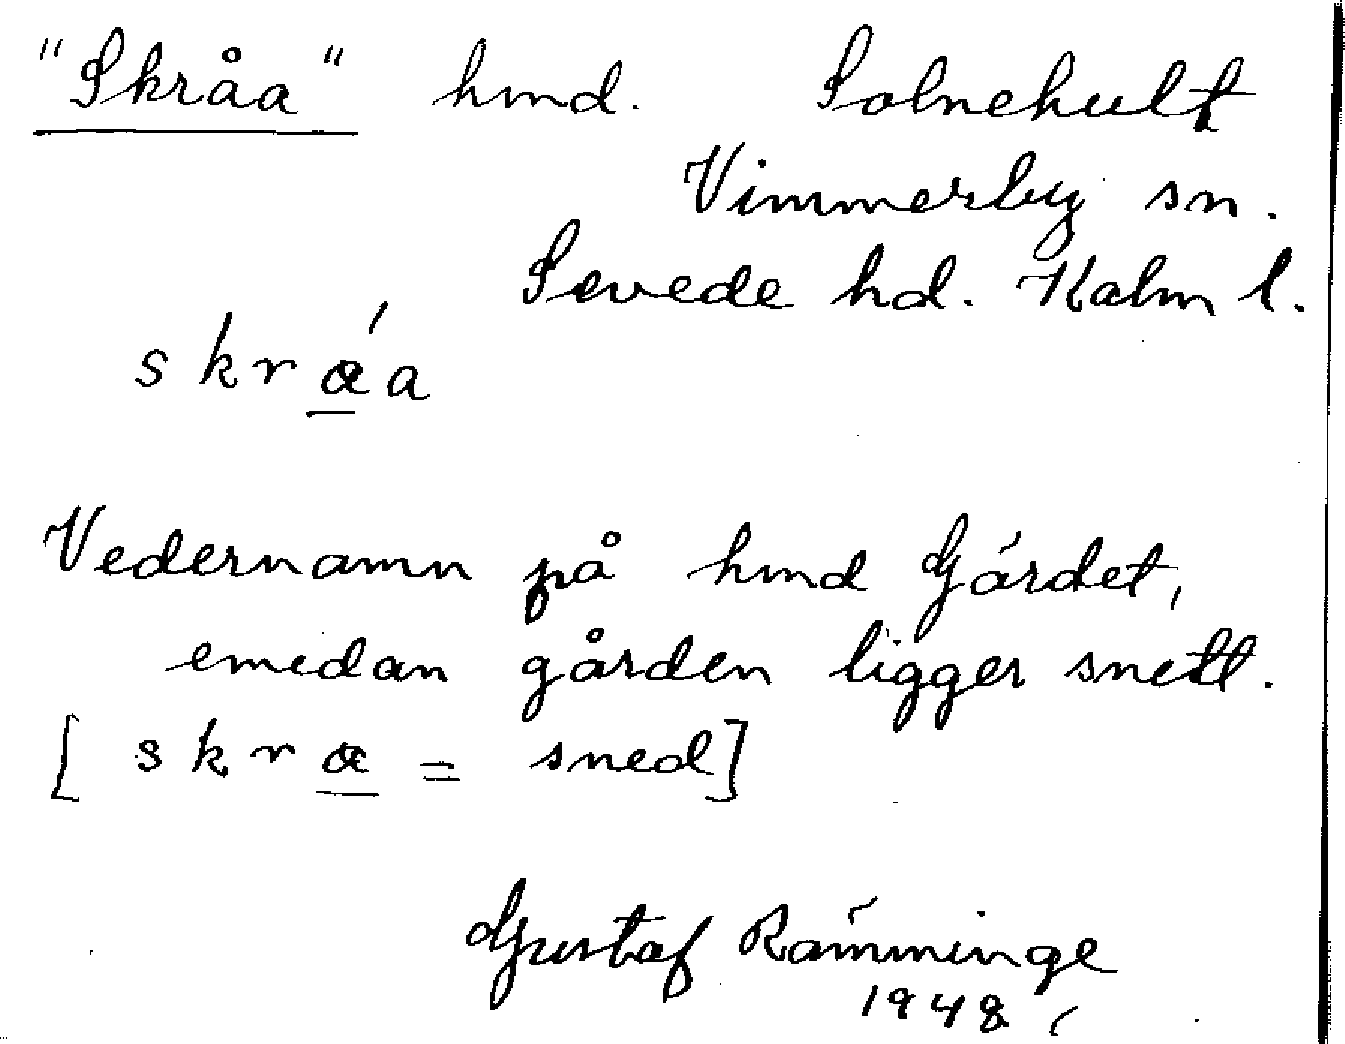 "Skråa" hmd. Solnehult
Vimmerby sn.
Sevede hd. Kalm l.
skrǽa
Vedernamn på hmd Gärdet,
emedan gården ligger snett.
[skræ = sned]
Gustaf Rämminge
1948